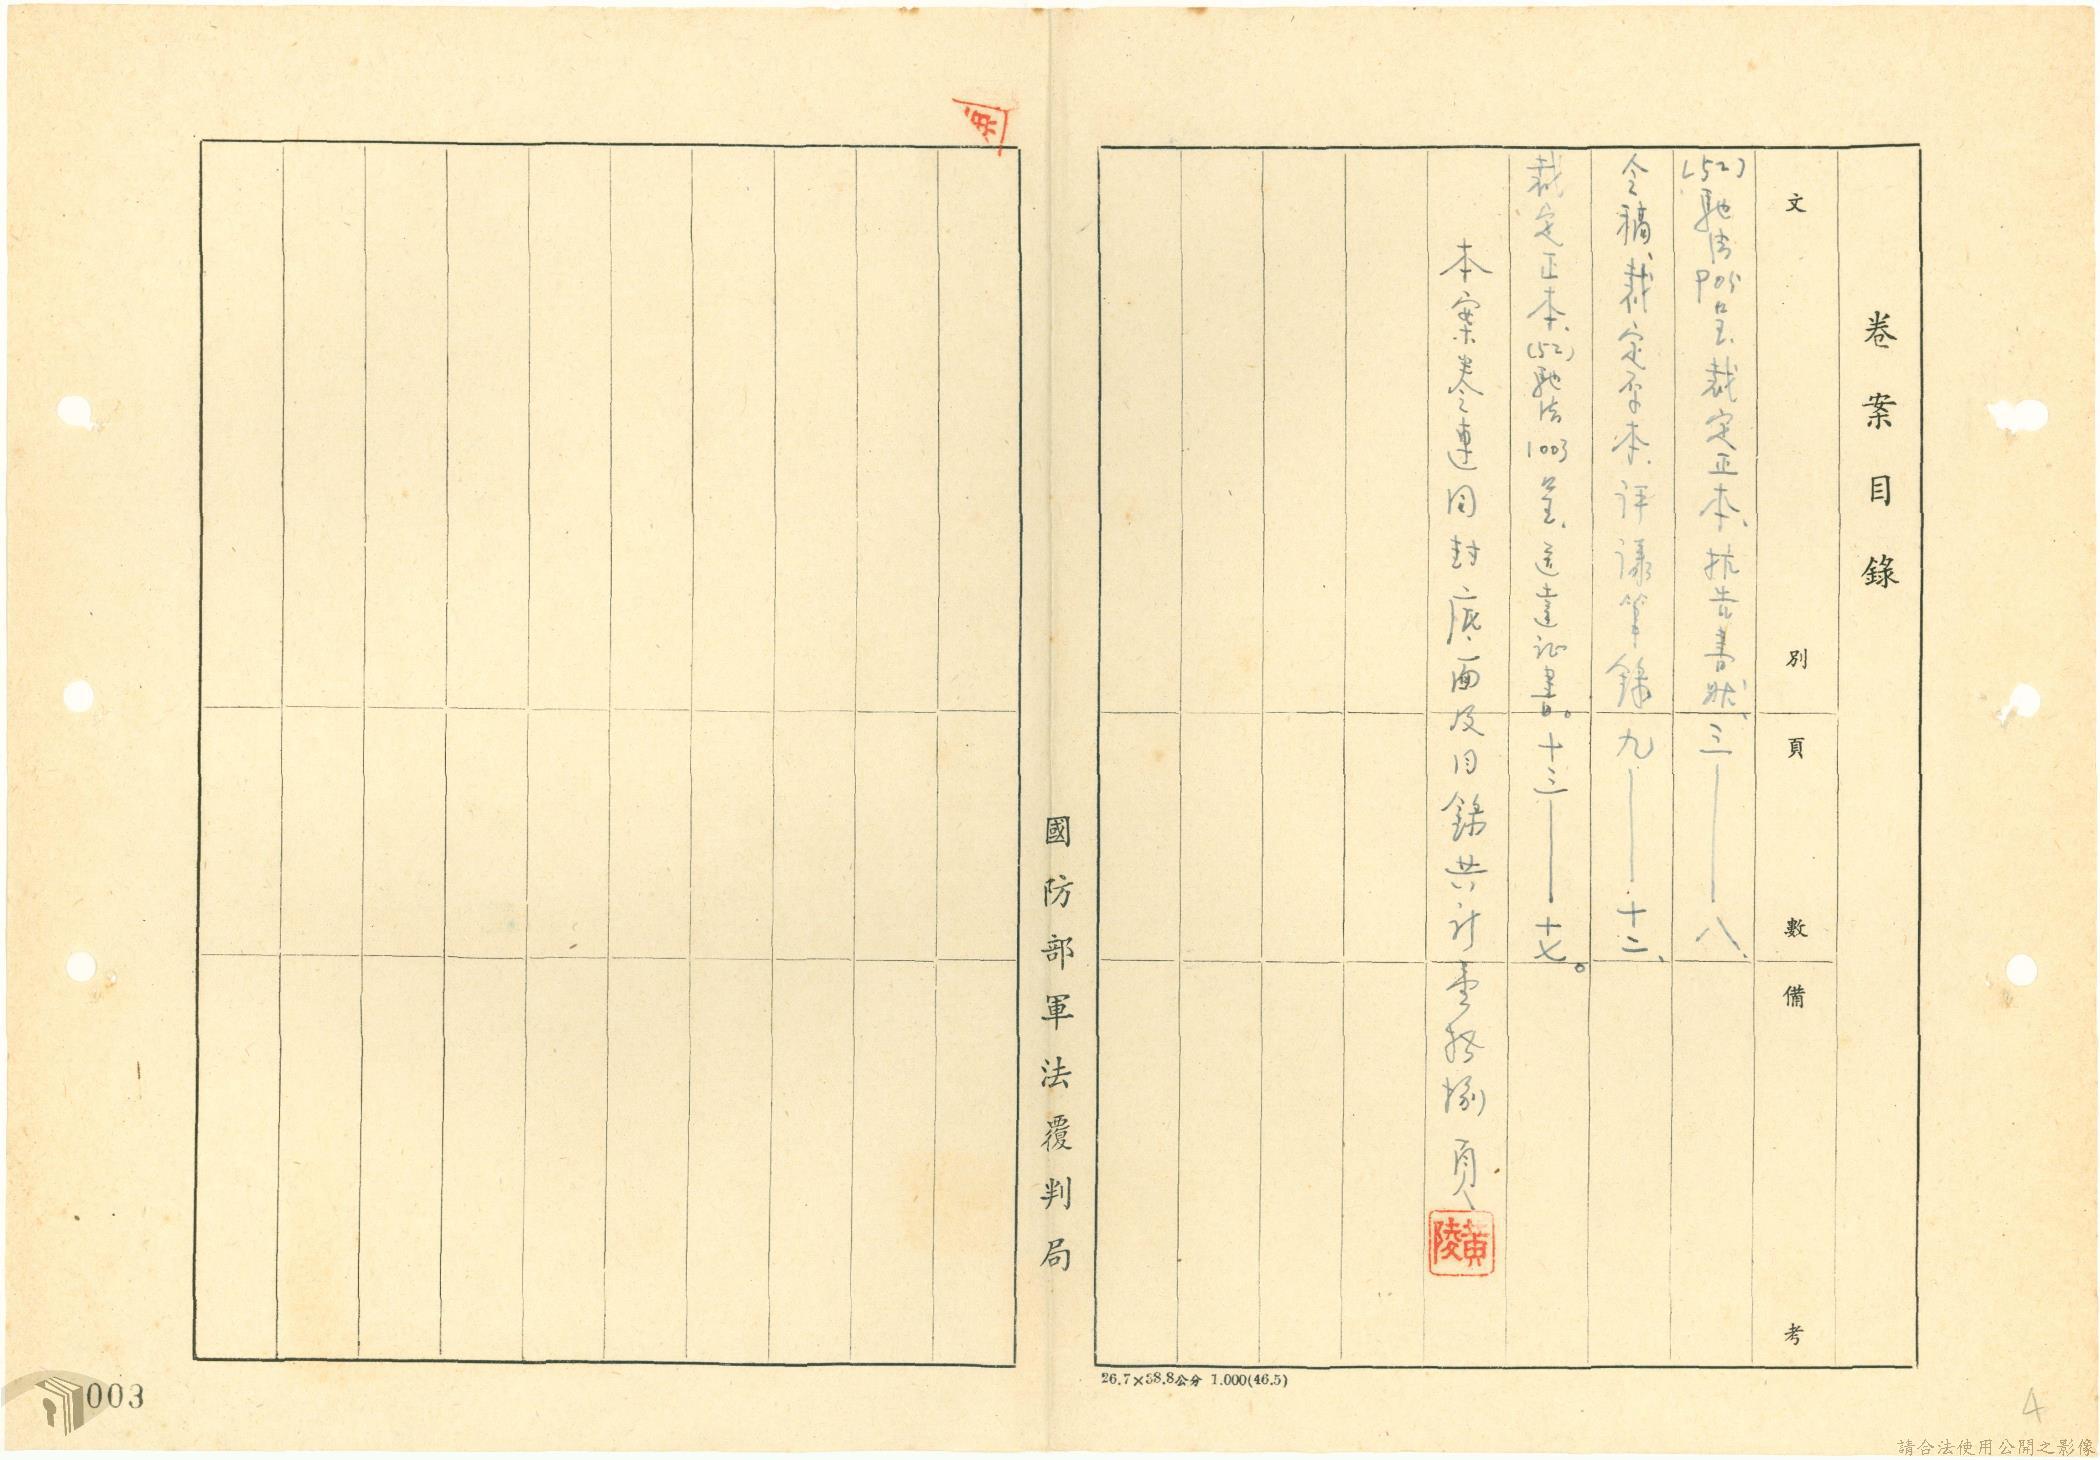 卷案目錄
文別
頁數
備考
(52)馳法905呈、裁定正本、抗告書狀、三——八、
令稿、裁定原本、評議筆錄九——十二、
裁定正本、(52)馳法1003呈、送達証書。十三——十七。
本案卷令連同封底面及目錄共計壹拾捌頁
黃陵
國防部軍法覆判局
26.7×38.8公分 1.000(46.5)
003
4
請合法使用公開之影像